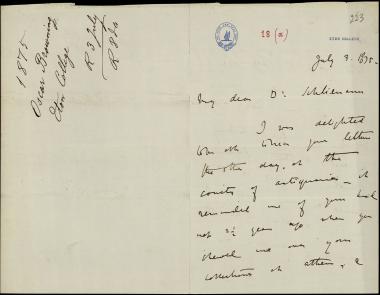 1875
Oscar Browning
Eton College
R 3 July
223
18 (a)
ETON COLLEGE
July 3. 1875.
My dear Dr Schliemann
I was delighted
with your letter
the other day, at the
society of antiquaries - it
reminded me of your
not 2½ years ago when you
showed me over your
collections at Athens, &